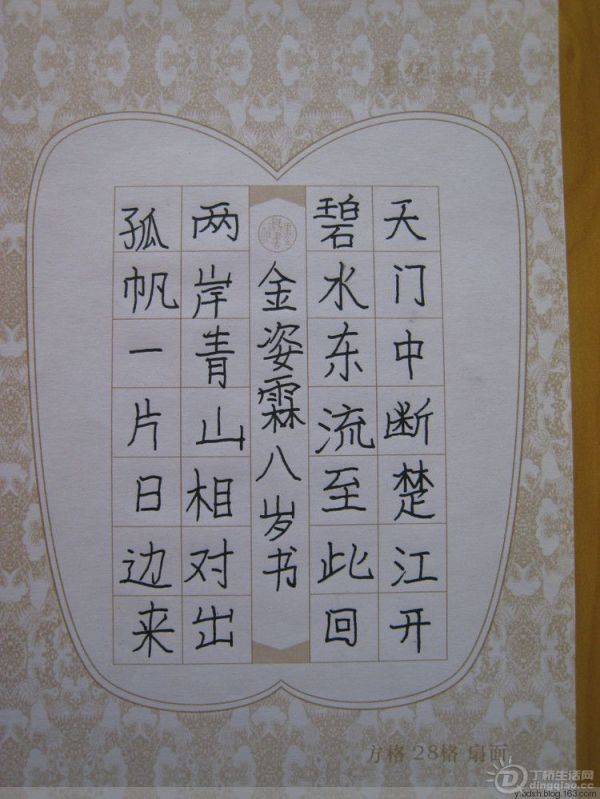 天门中断楚江开
碧水东流至此回
金姿霖八岁书
两岸青山相对出
孤帆一片日边来
方格 28格 扇面
丁桥生活网
dingqiao.cc
ylxdsh.blog.163.com